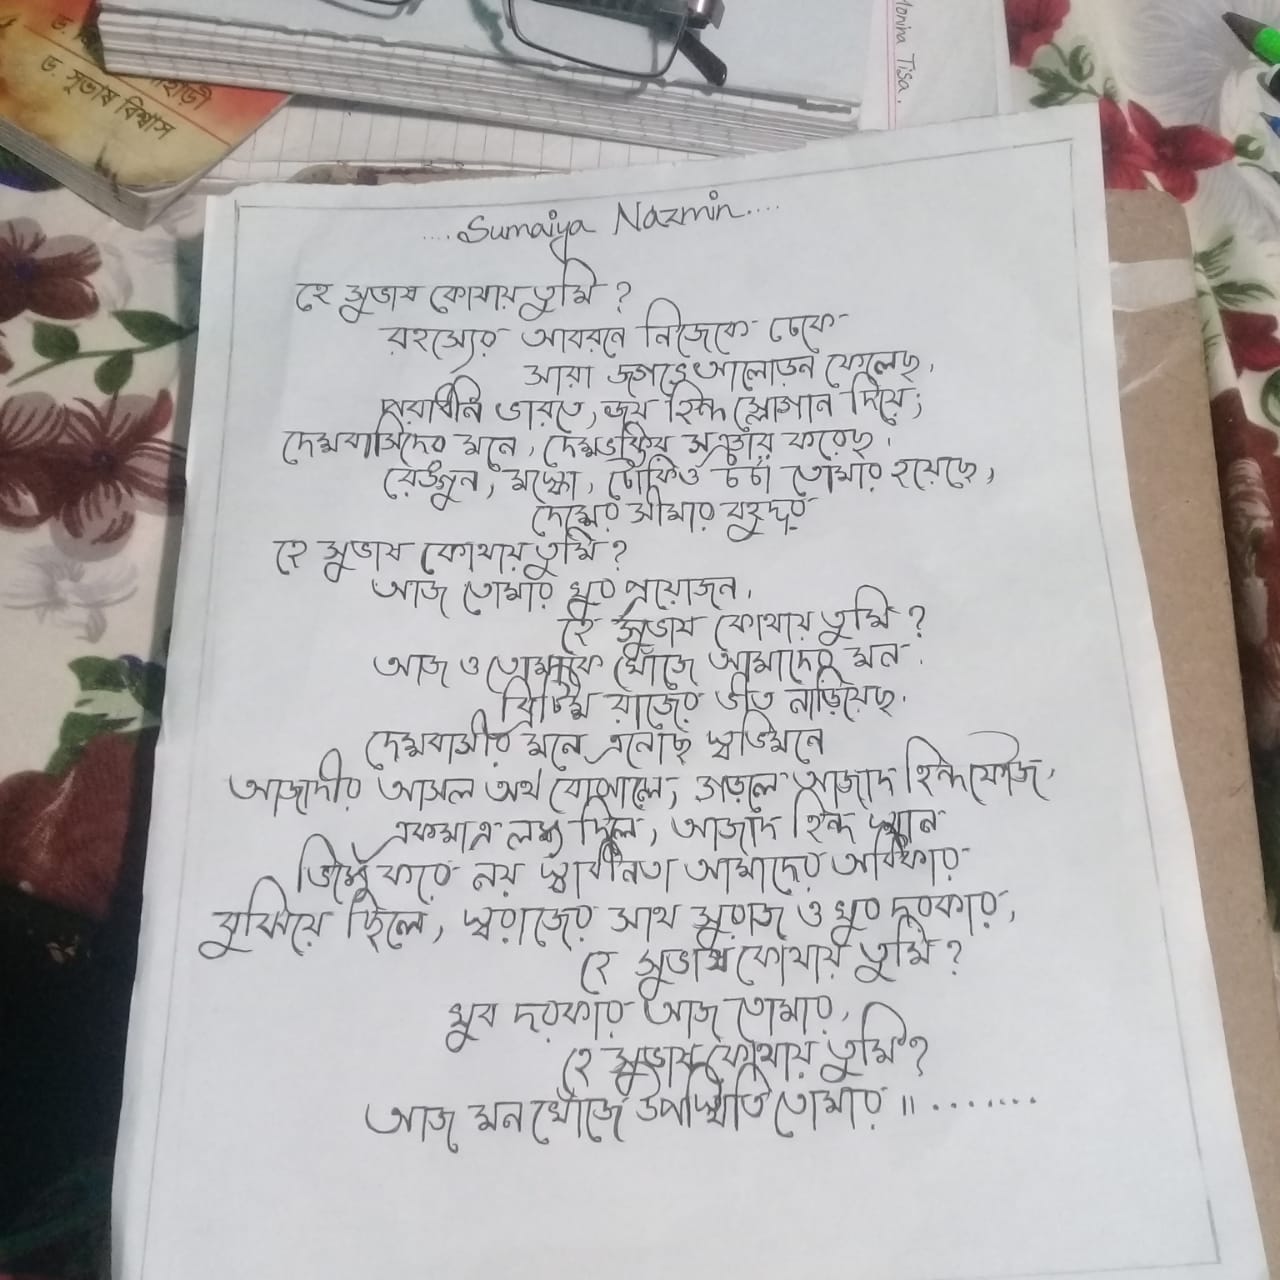 ড. সুভাষ বিশ্বাস
Monira Tisa.
....Sumaiya Nazmin....
হে সুভাষ কোথায় তুমি ?
রহস্যের আবরনে নিজেকে ঢেকে
সারা জগতে আলোড়ন ফেলেছ,
পরাধীন ভারতে, জয় হিন্দ স্লোগান দিয়ে;
দেশবাসিদের মনে, দেশভক্তির সঞ্চার করেছ.
রেঙ্গুন, মস্কো, টোকিও চর্চা তোমার হয়েছে,
দেশের সীমার বহুদূর
হে সুভাষ কোথায় তুমি ?
আজ তোমার খুব প্রয়োজন,
হে সুভাষ কোথায় তুমি ?
আজ ও তোমাকে খোঁজে আমাদের মন.
ব্রিটিশ রাজের ভীত নাড়িয়েছ.
দেশবাসীর মনে এনেছ স্বভিমনে
আজাদীর আসল অর্থ বোঝালে, গড়লে আজাদ হিন্দ ফৌজ,
একমাত্র লক্ষ্য ছিল, আজাদ হিন্দ স্থান
ভিক্ষে করে নয় স্বাধীনতা আমাদের অধিকার
বুঝিয়ে ছিলে, স্বরাজের সাথ সুরাজ ও খুব দরকার,
হে সুভাষ কোথায় তুমি ?
খুব দরকার আজ তোমার,
হে সুভাষ কোথায় তুমি ?
আজ মন খোঁজে উপস্থিতি তোমার ॥.......